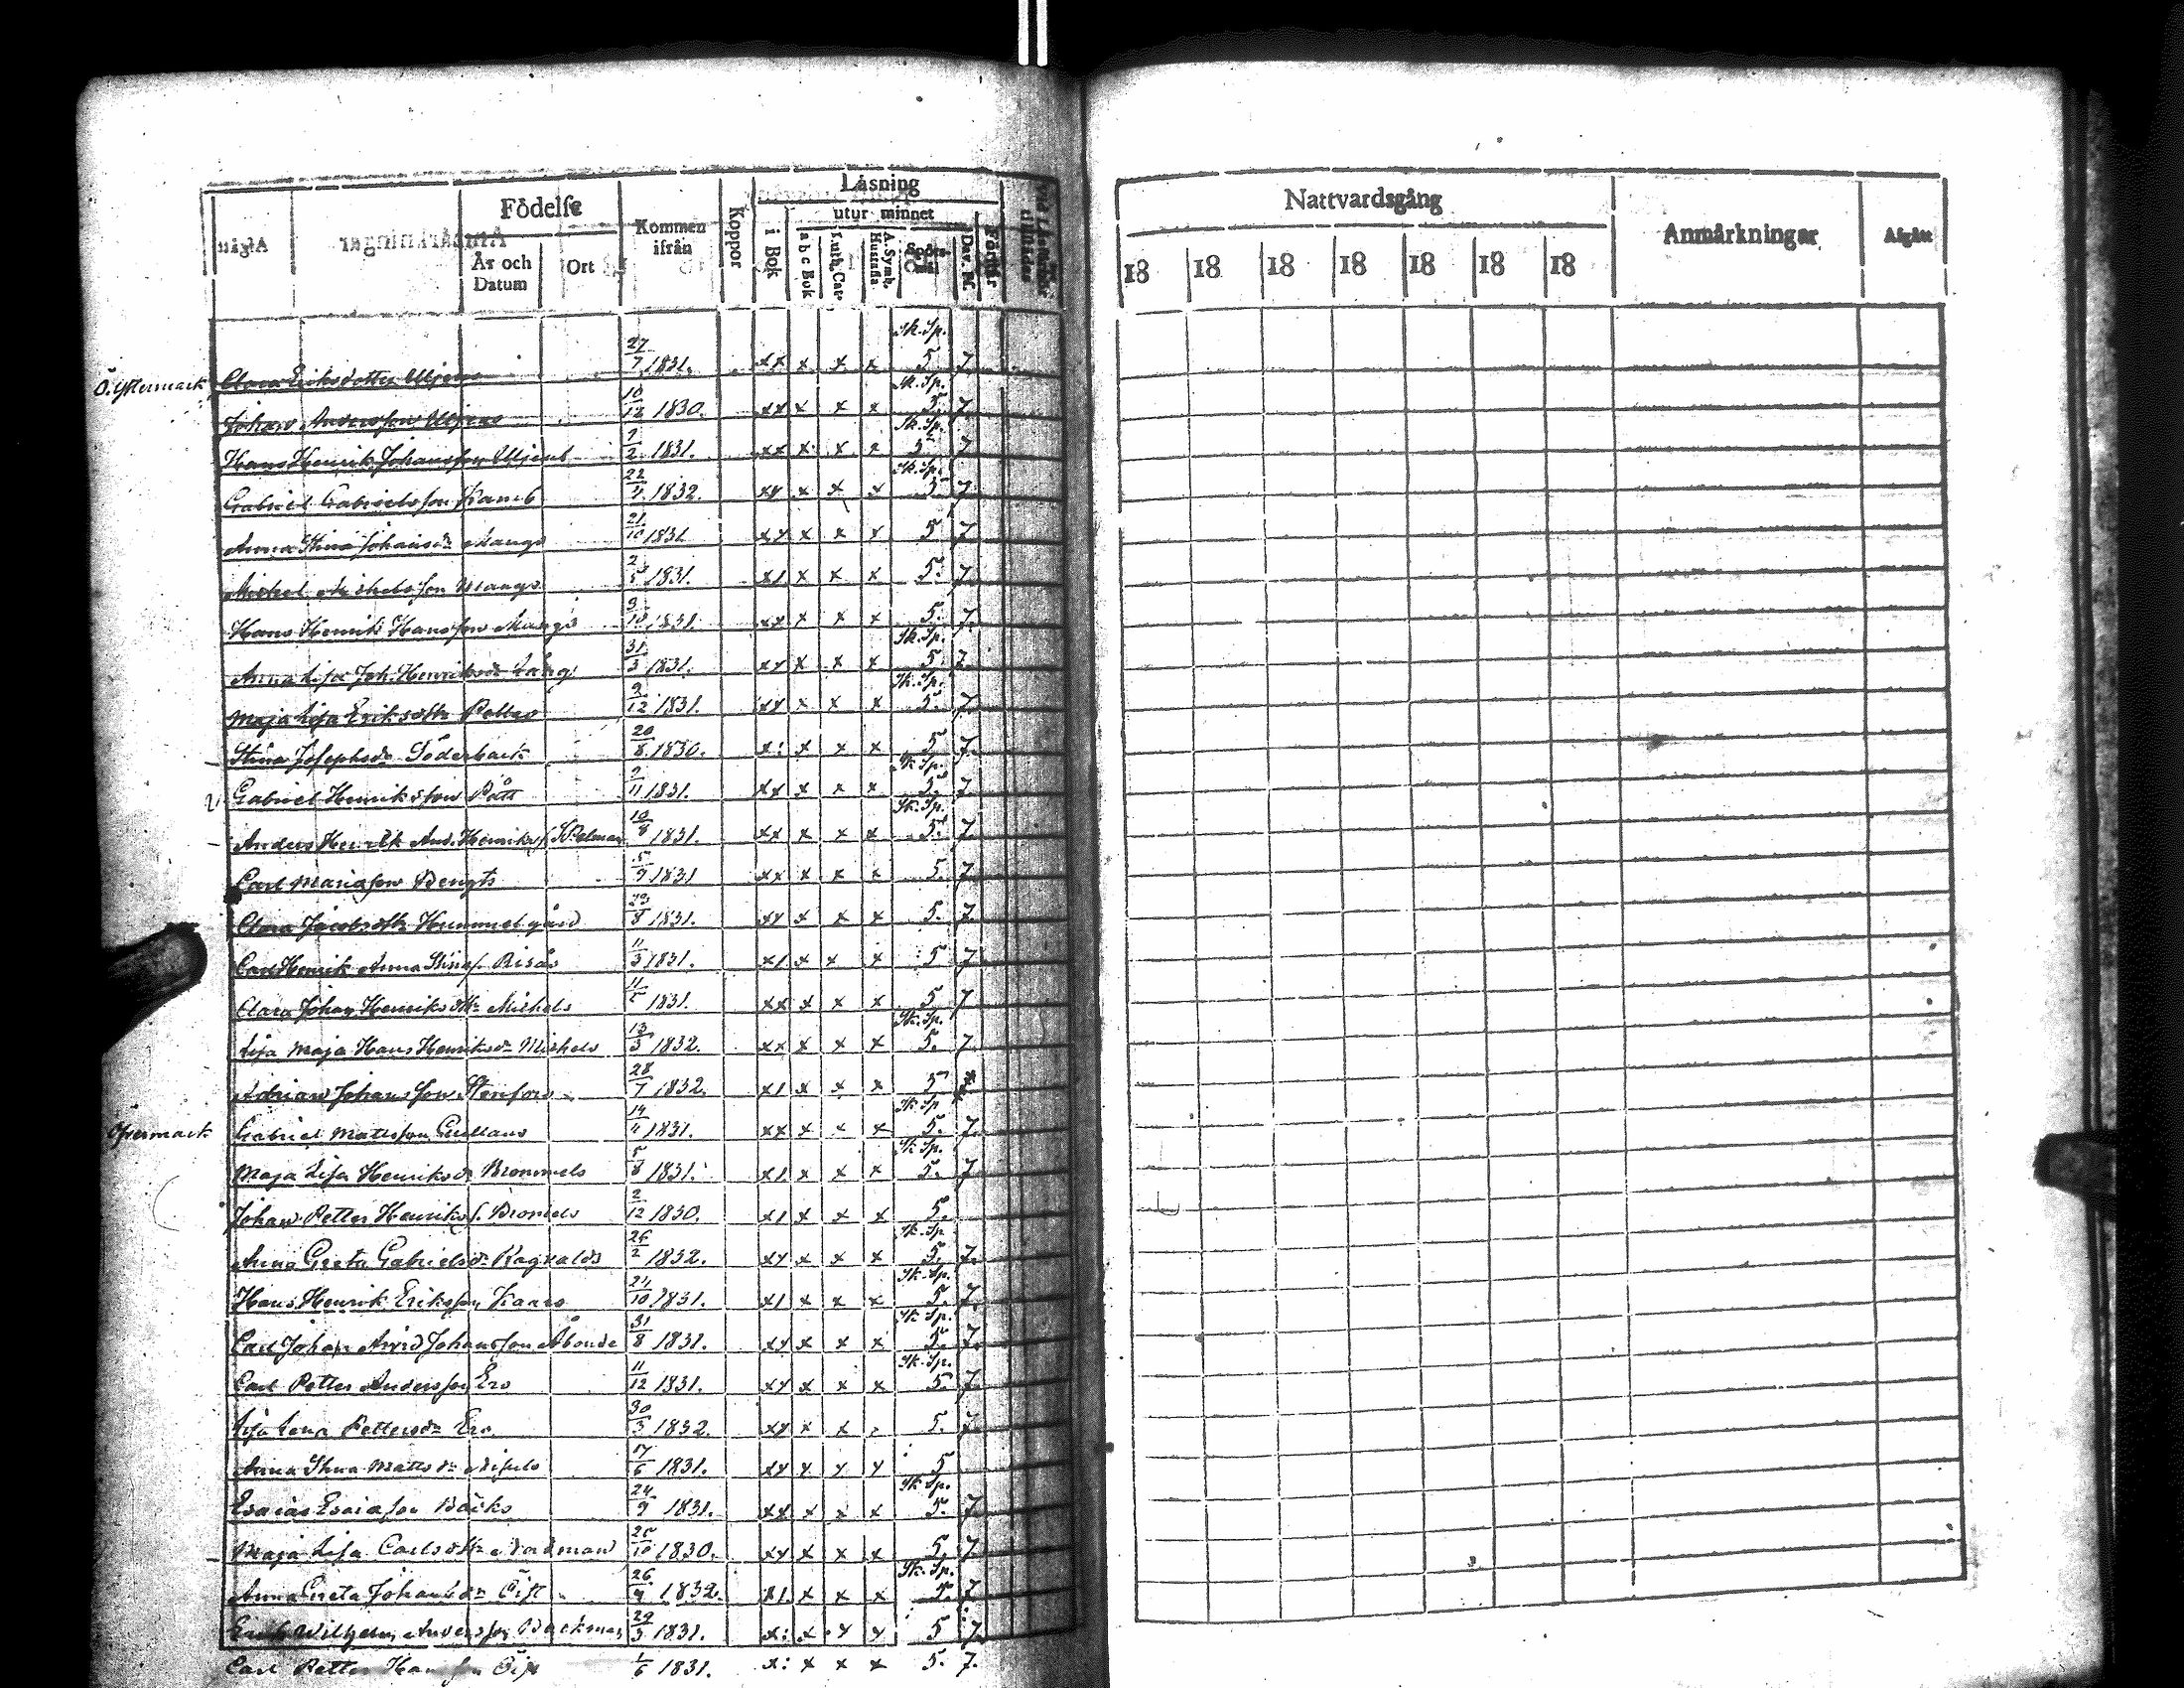 Läsning
Födelse
Kommen ifrån
Koppor
utur minnet
År och Datum
Ort
i Bok
a b c Bok
Luth. Cat.
A. Symb. Hustafla
Spörs-mål
Dav. Ps.
Nattvardsgång
Anmärkningar
Afgått
18 18 18 18 18 18 18
Sk. Sp.
Ö. Ystermark Clara Eriksdotter 27/7 1831. xx x x x 5 7.
Sk. Sp.
Johan Andersson 10/12 1830. xx x x x 5. 7.
Sk. Sp.
Hans Henrik Johansson 7/2 1831. xx x x x 5 7
Sk. Sp.
Gabriel Gabrielsson 22/4 1832. xx x x x 5 7.
Anna Stina Johansdr Mangs 21/10 1831 xx x x x 5 7
Michel Michelsson Mangs 2/5 1831. x1 x x x 5. 7.
Hans Henrik Hansson Mangs 9/10 1831 xx x x x 5. 7.
Sk. Sp.
Anna Lisa Joh. Henriksdr Lång 31/3 1831. xx x x x 5. 7.
Sk. Sp.
Maja Lisa Eriksdtr 9/12 1831. xx x x x 5. 7.
Stina Josephsdr Söderback 20/8 1830. x: x x x 5 7.
Sk. Sp.
Gabriel Henriksson Pått 2/11 1831. xx x x x 5. 7
Sk. Sp.
Anders Henrik And. Henriks. 10/8 1831. xx x x x 5. 7.
Carl Mariason Bengts 5/9 1831 xx x x x 5. 7.
Clara Jacobsdtr Hummelgård 23/8 1831. xx x x x 5. 7.
Carl Henrik Anna Stinas. Risås 11/3 1831. x1 x x x 5 7.
Clara Johan Henriksdtr Michels 11/5 1831. xx x x x 5 7
Sk. Sp.
Lisa Maja Hans Henriksdr Michels 13/3 1832. xx x x x 5. 7
Adrian Johansson Stenfors 28/7 1832. x1 x x x 5
Sk. Sp.
Öfvermark Gabriel Mattsson Gullans 14/4 1831. xx x x x 5. 7.
Sk. Sp.
Maja Lisa Henriksdr Brommels 5/8 1831. x1 x x x 5. 7
Johan Petter Henriks. Bromels 2/12 1830. x1 x x x 5.
Sk. Sp.
Anna Greta Gabrielsdr Ragvalds 26/2 1832. xx x x x 5. 7.
Sk. Sp.
Hans Henrik Eriksson Kaars 21/10 1831. x1 x x x 5. 7.
Sk. Sp.
Carl Johan Arvid Johansson Åbonde 31/8 1831. xx x x x 5. 7.
Sk. Sp.
Carl Petter Andersson Ers 11/12 1831. xx x x x 5. 7.
Lisa Lena Pettersdr Ers. 30/3 1832. xx x x 5. 7.
Anna Stina Mattsdr 17/6 1831. xx x x x 5
Sk. Sp.
Esaias Esaiason Bäcks 24/9 1831. xx x x x 5. 7.
Maja Lisa Carlsdtr Nordman 25/10 1830. xx x x x 5. 7
Sk. Sp.
Anna Greta Johansdr Öist 26/9 1832. x1. x x x 5. 7
Erik Wilhelm Andersson Backman 29/3 1831. x: x x x 5 7.
Carl Petter Hansson Öist 1/6 1831. x: x x x 5. 7.